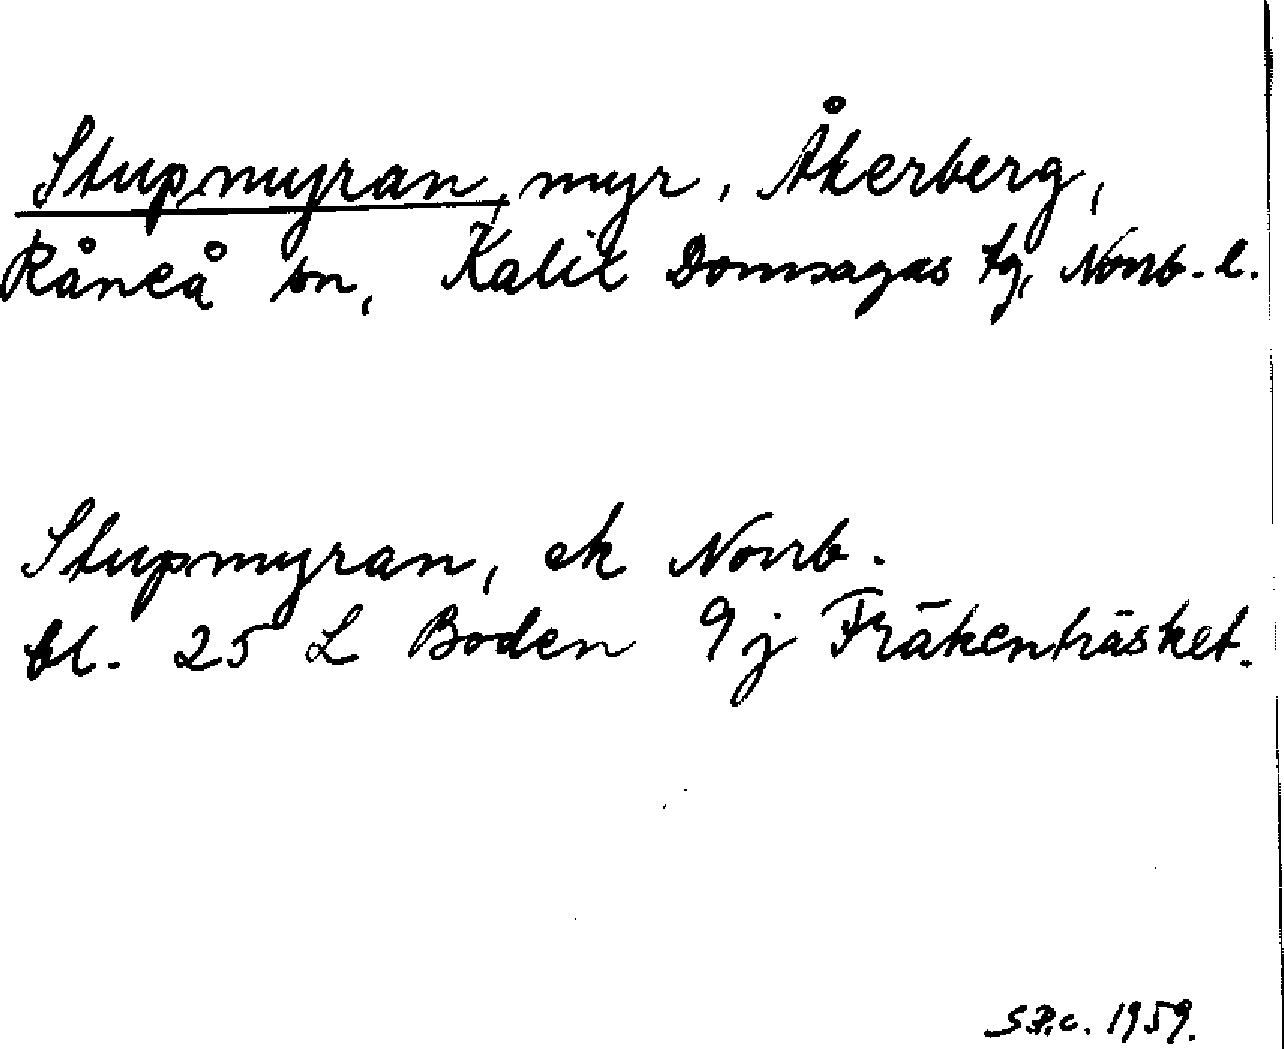 Stupmyran, myr, Åkerberg,
Råneå sn, Kalix Domsagas tg, Norrb. l.
Stupmyran, ek Norrb.
bl. 25 L Boden 9 j Fräkenträsket.
1959.